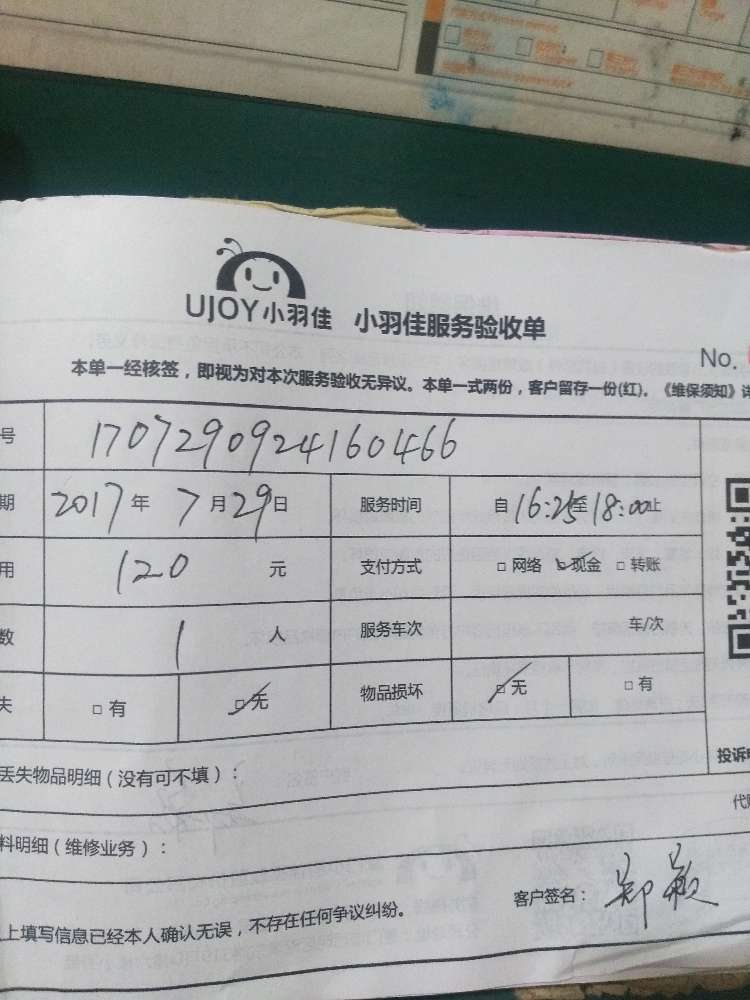 UJOY小羽佳 小羽佳服务验收单
No.
本单一经核签，即视为对本次服务验收无异议。本单一式两份，客户留存一份(红)。《维保须知》详
号 1707290924160466
期 2017 年 7 月 29 日 服务时间 自 16:25 至 18:00 止
用 120 元 支付方式 □ 网络 □ 现金 □ 转账
数 1 人 服务车次 车/次
失 □ 有 □ 无 物品损坏 □ 无 □ 有
投诉电
丢失物品明细（没有可不填）：
料明细（维修业务）：
客户签名：郑颖
上填写信息已经本人确认无误，不存在任何争议纠纷。